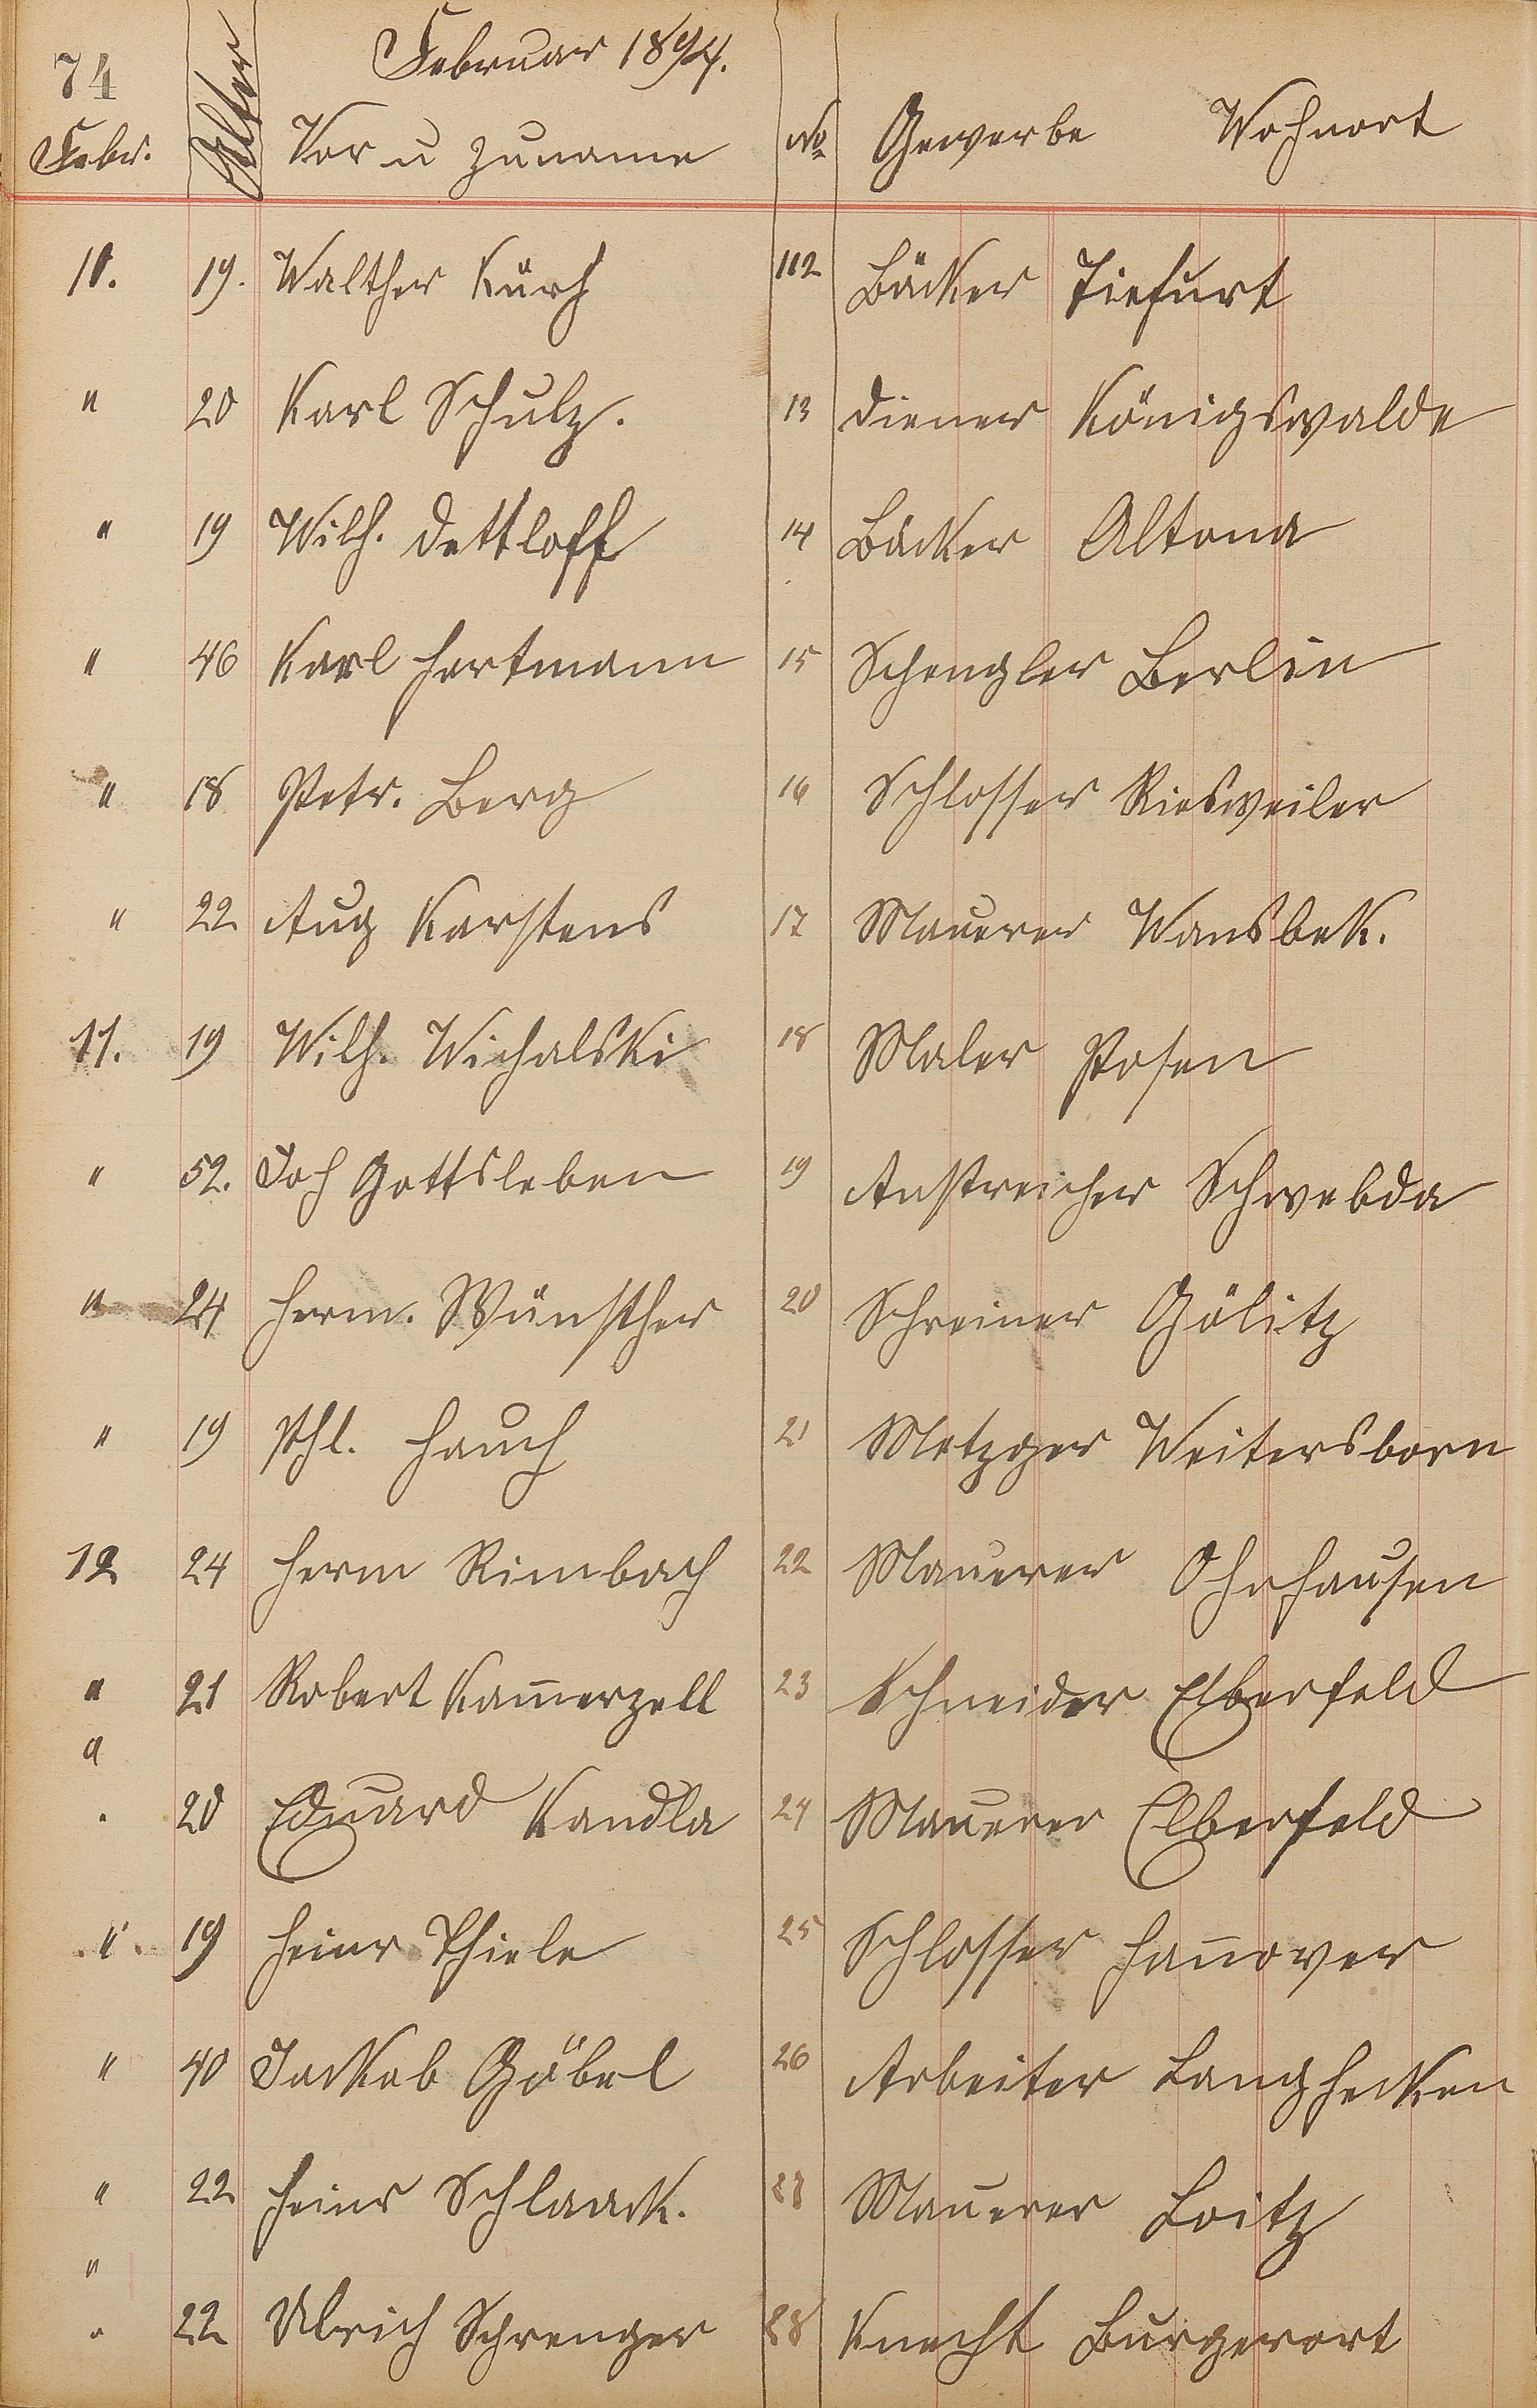 74 Alter Februar 1894.
Febr. Vor u Zuname No Gewerbe Wohnort
10. 19. Walther Kürch 112 Bäcker Tiefurt
" 20 Karl Schulz. 13 Diener Königswalde
" 19 Wilh. Dettloff 14 Bäcker Altona
" 46 Karl Hartmann 15 Spengler Berlin
" 18 Petr. Berg 16 Schlosser Riesweiler
" 22 Aug Karstens 17 Maurer Wansbek.
11. 19 Wilh. Wichalski 18 Maler Posen
" 52. Joh Gottsleben 19 Anstreicher Schwebda
" 24 Herm. Wünsther 20 Schreiner Gölitz
" 19 Phl. Hauch 21 Metzger Weitersborn
12 24 Herm Rimbach 22 Maurer
" 21 Robert Kam̄erzell 23 Schneider Elberfeld
"
" 20 Eduard Kandla 24 Maurer Elberfeld
" 19 Heinr Thiele 25 Schlosser Han̄over
" 40 Jackob Göbel 26 Arbeiter Langhecken
" 22 Heinr Schlaack. 27 Maurer Loitz
"
" 22 Ulrich Schrenger 28 Knecht Burgerort